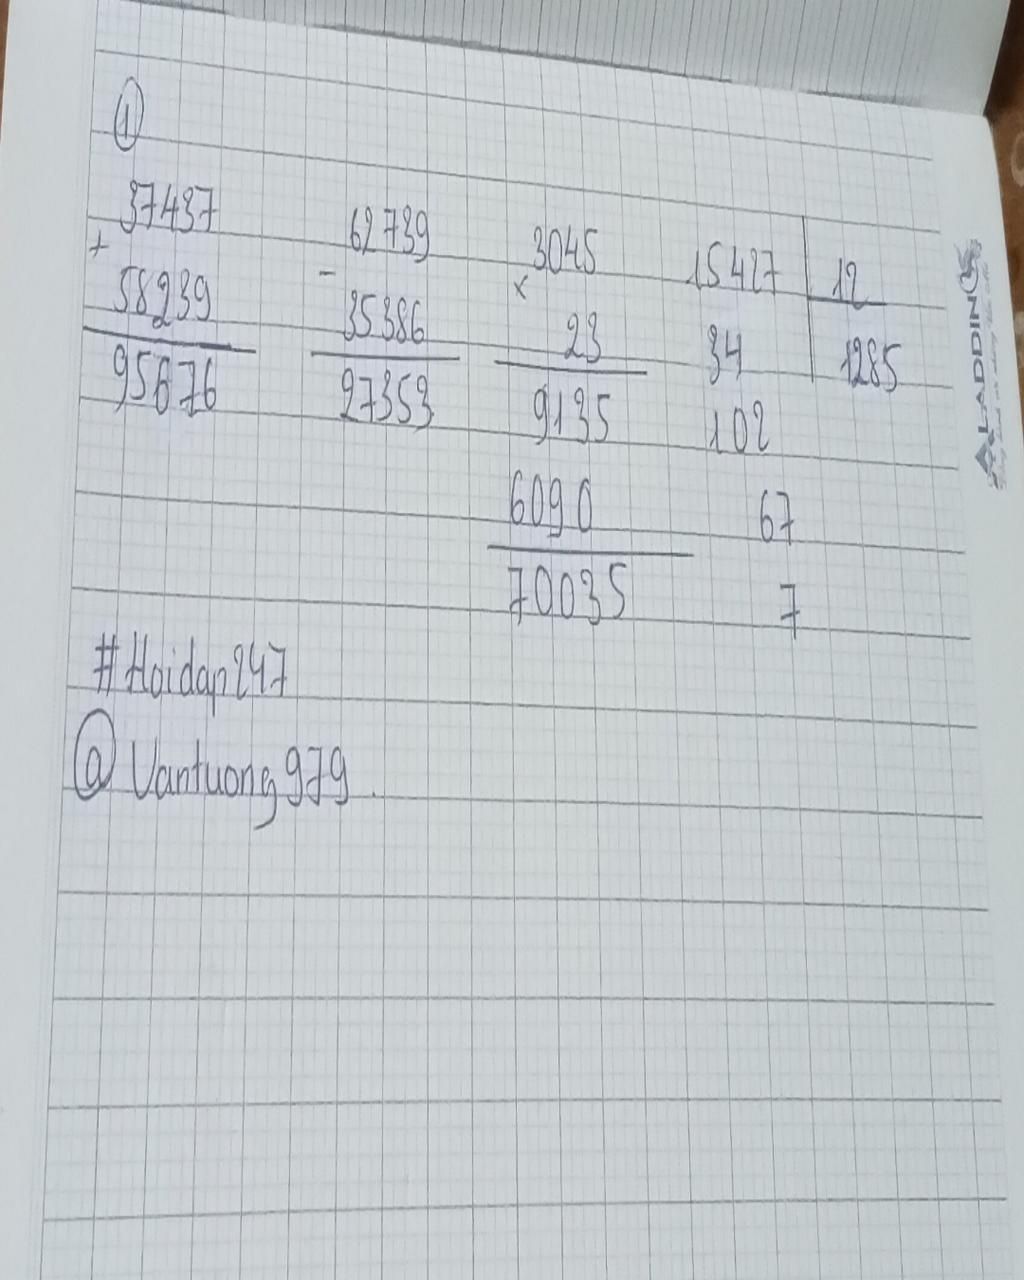 1
37437 62739 3045 15427 12
+ - ×
58239 35386 23 34 1285
95676 27353 9135 102
6090 67
70035 7
#Hoidap247
@Vantuong979
ALADDIN